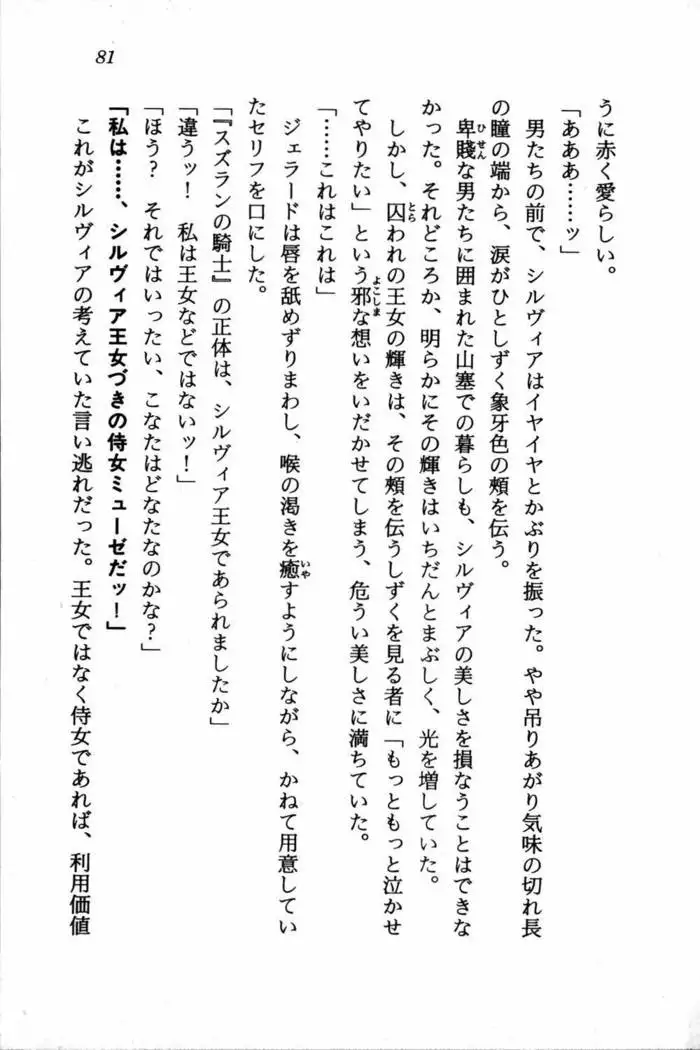 81
うに赤く愛らしい。
「あああ……ッ」
男たちの前で、シルヴィアはイヤイヤとかぶりを振った。やや吊りあがり気味の切れ長
の瞳の端から、涙がひとしずく象牙色の頬を伝う。
卑賤な男たちに囲まれた山塞での暮らしも、シルヴィアの美しさを損なうことはできな
かった。それどころか、明らかにその輝きはいちだんとまぶしく、光を増していた。
しかし、囚われの王女の輝きは、その頬を伝うしずくを見る者に「もっともっと泣かせ
てやりたい」という邪な想いをいだかせてしまう、危うい美しさに満ちていた。
「……これはこれは」
ジェラードは唇を舐めずりまわし、喉の渇きを癒すようにしながら、かねて用意してい
たセリフを口にした。
「『スズランの騎士』の正体は、シルヴィア王女であられましたか」
「違うッ！　私は王女などではないッ！」
「ほう？　それではいったい、こなたはどなたなのかな？」
「私は……、シルヴィア王女づきの侍女ミューゼだッ！」
これがシルヴィアの考えていた言い逃れだった。王女ではなく侍女であれば、利用価値